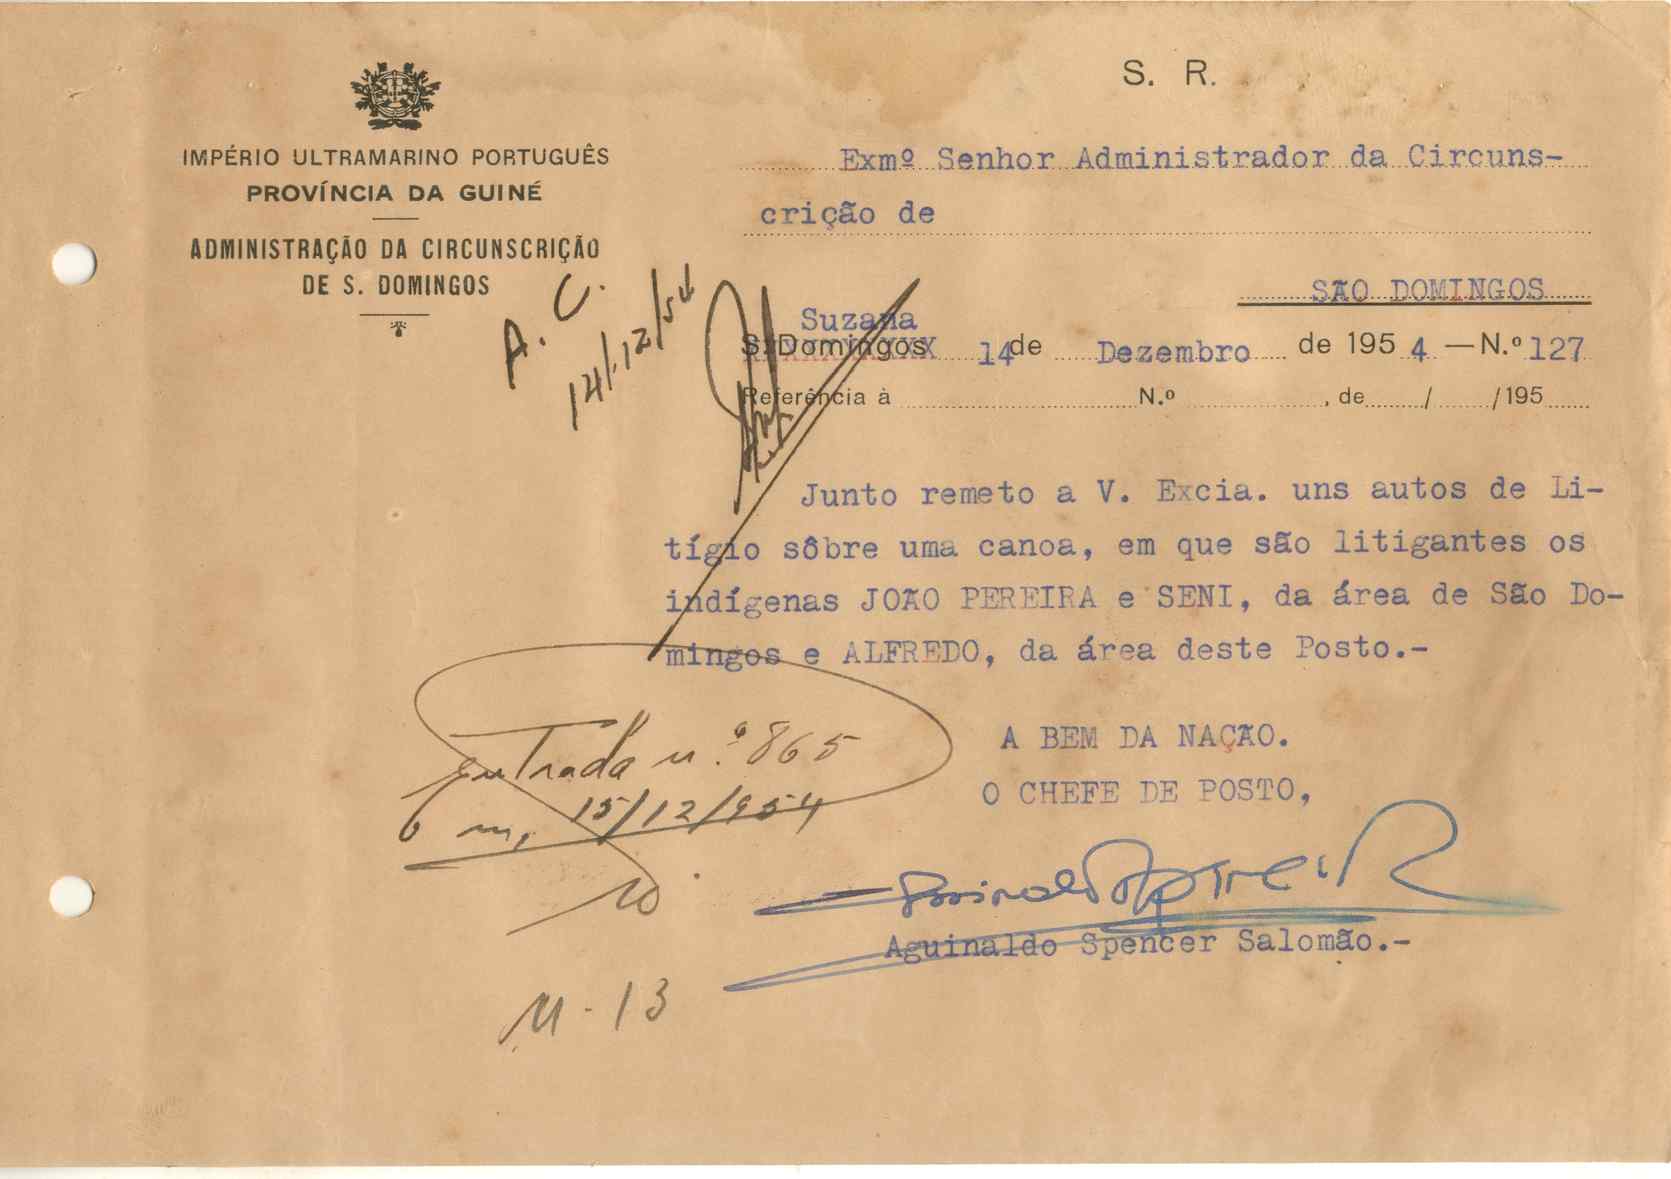 S. R.
IMPÉRIO ULTRAMARINO PORTUGUÊS
PROVÍNCIA DA GUINÉ
ADMINISTRAÇÃO DA CIRCUNSCRIÇÃO
DE S. DOMINGOS
Exmº Senhor Administrador da Circuns-
crição de
SÃO DOMINGOS
A. C.
14/12/54
Suzana
S. Domingos 14 de Dezembro de 1954 — N.º 127
Referência à N.º , de / /195
Junto remeto a V. Excia. uns autos de Li-
tígio sôbre uma canoa, em que são litigantes os
indígenas JOÃO PEREIRA e SENI, da área de São Do-
mingos e ALFREDO, da área deste Posto.-
A BEM DA NAÇÃO.
O CHEFE DE POSTO,
Entrada nº. 865
15/12/954
Aguinaldo Spencer Salomão.-
M-13